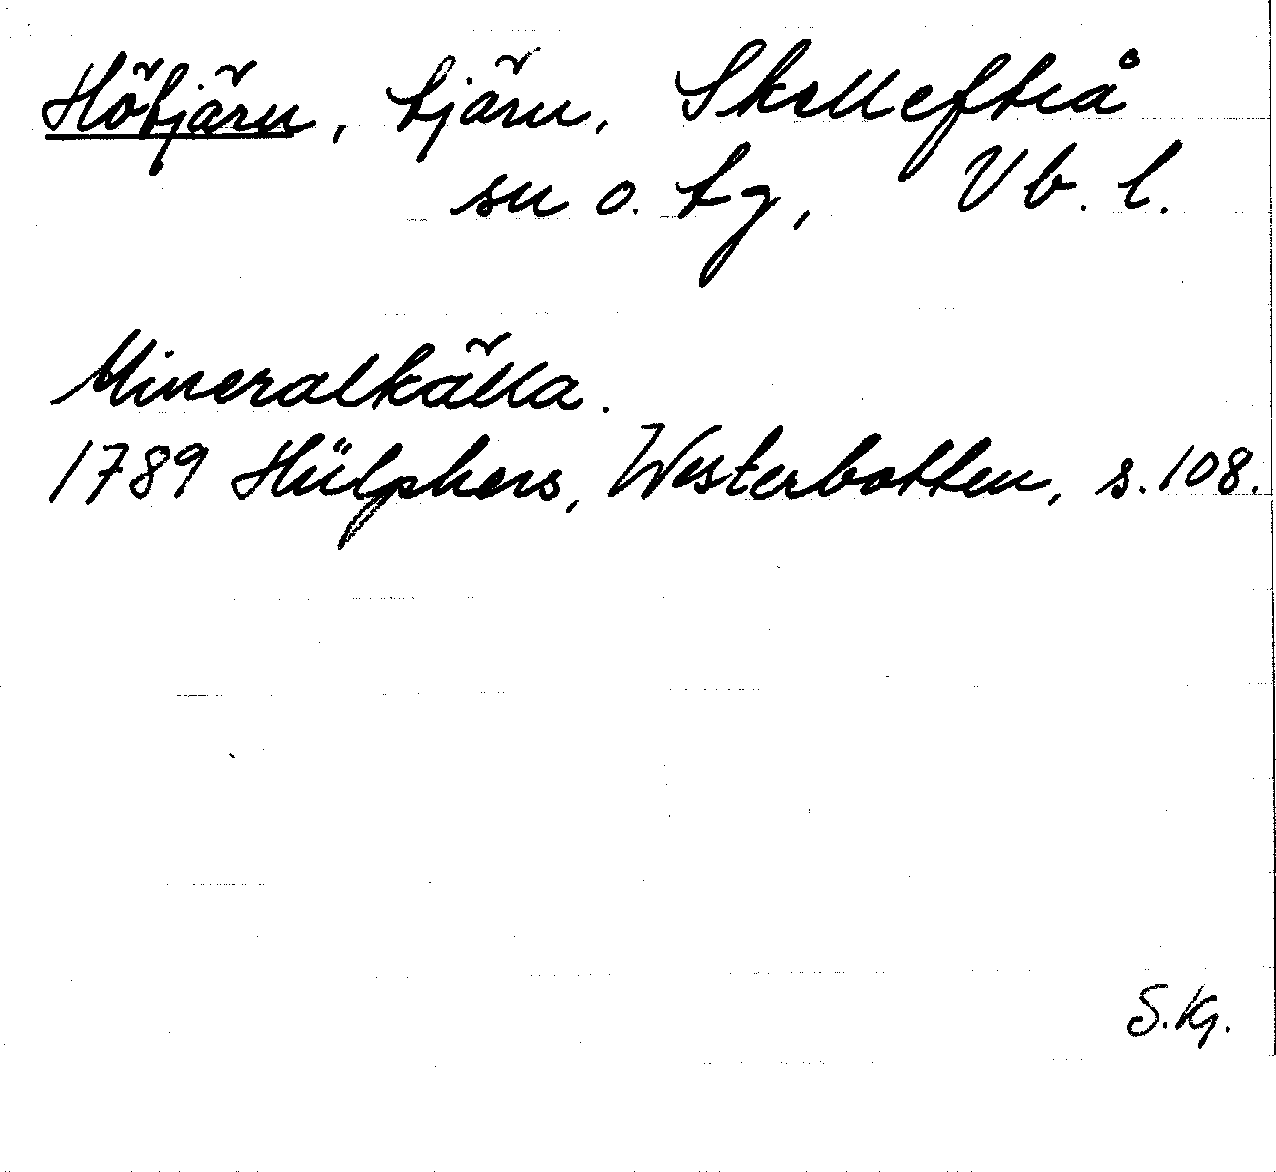 Hötjärn, tjärn, Skellefteå
sn o. tg, Vb. l.
Mineralkälla.
1789 Hülphers, Westerbotten, s. 108.
S.Kg.